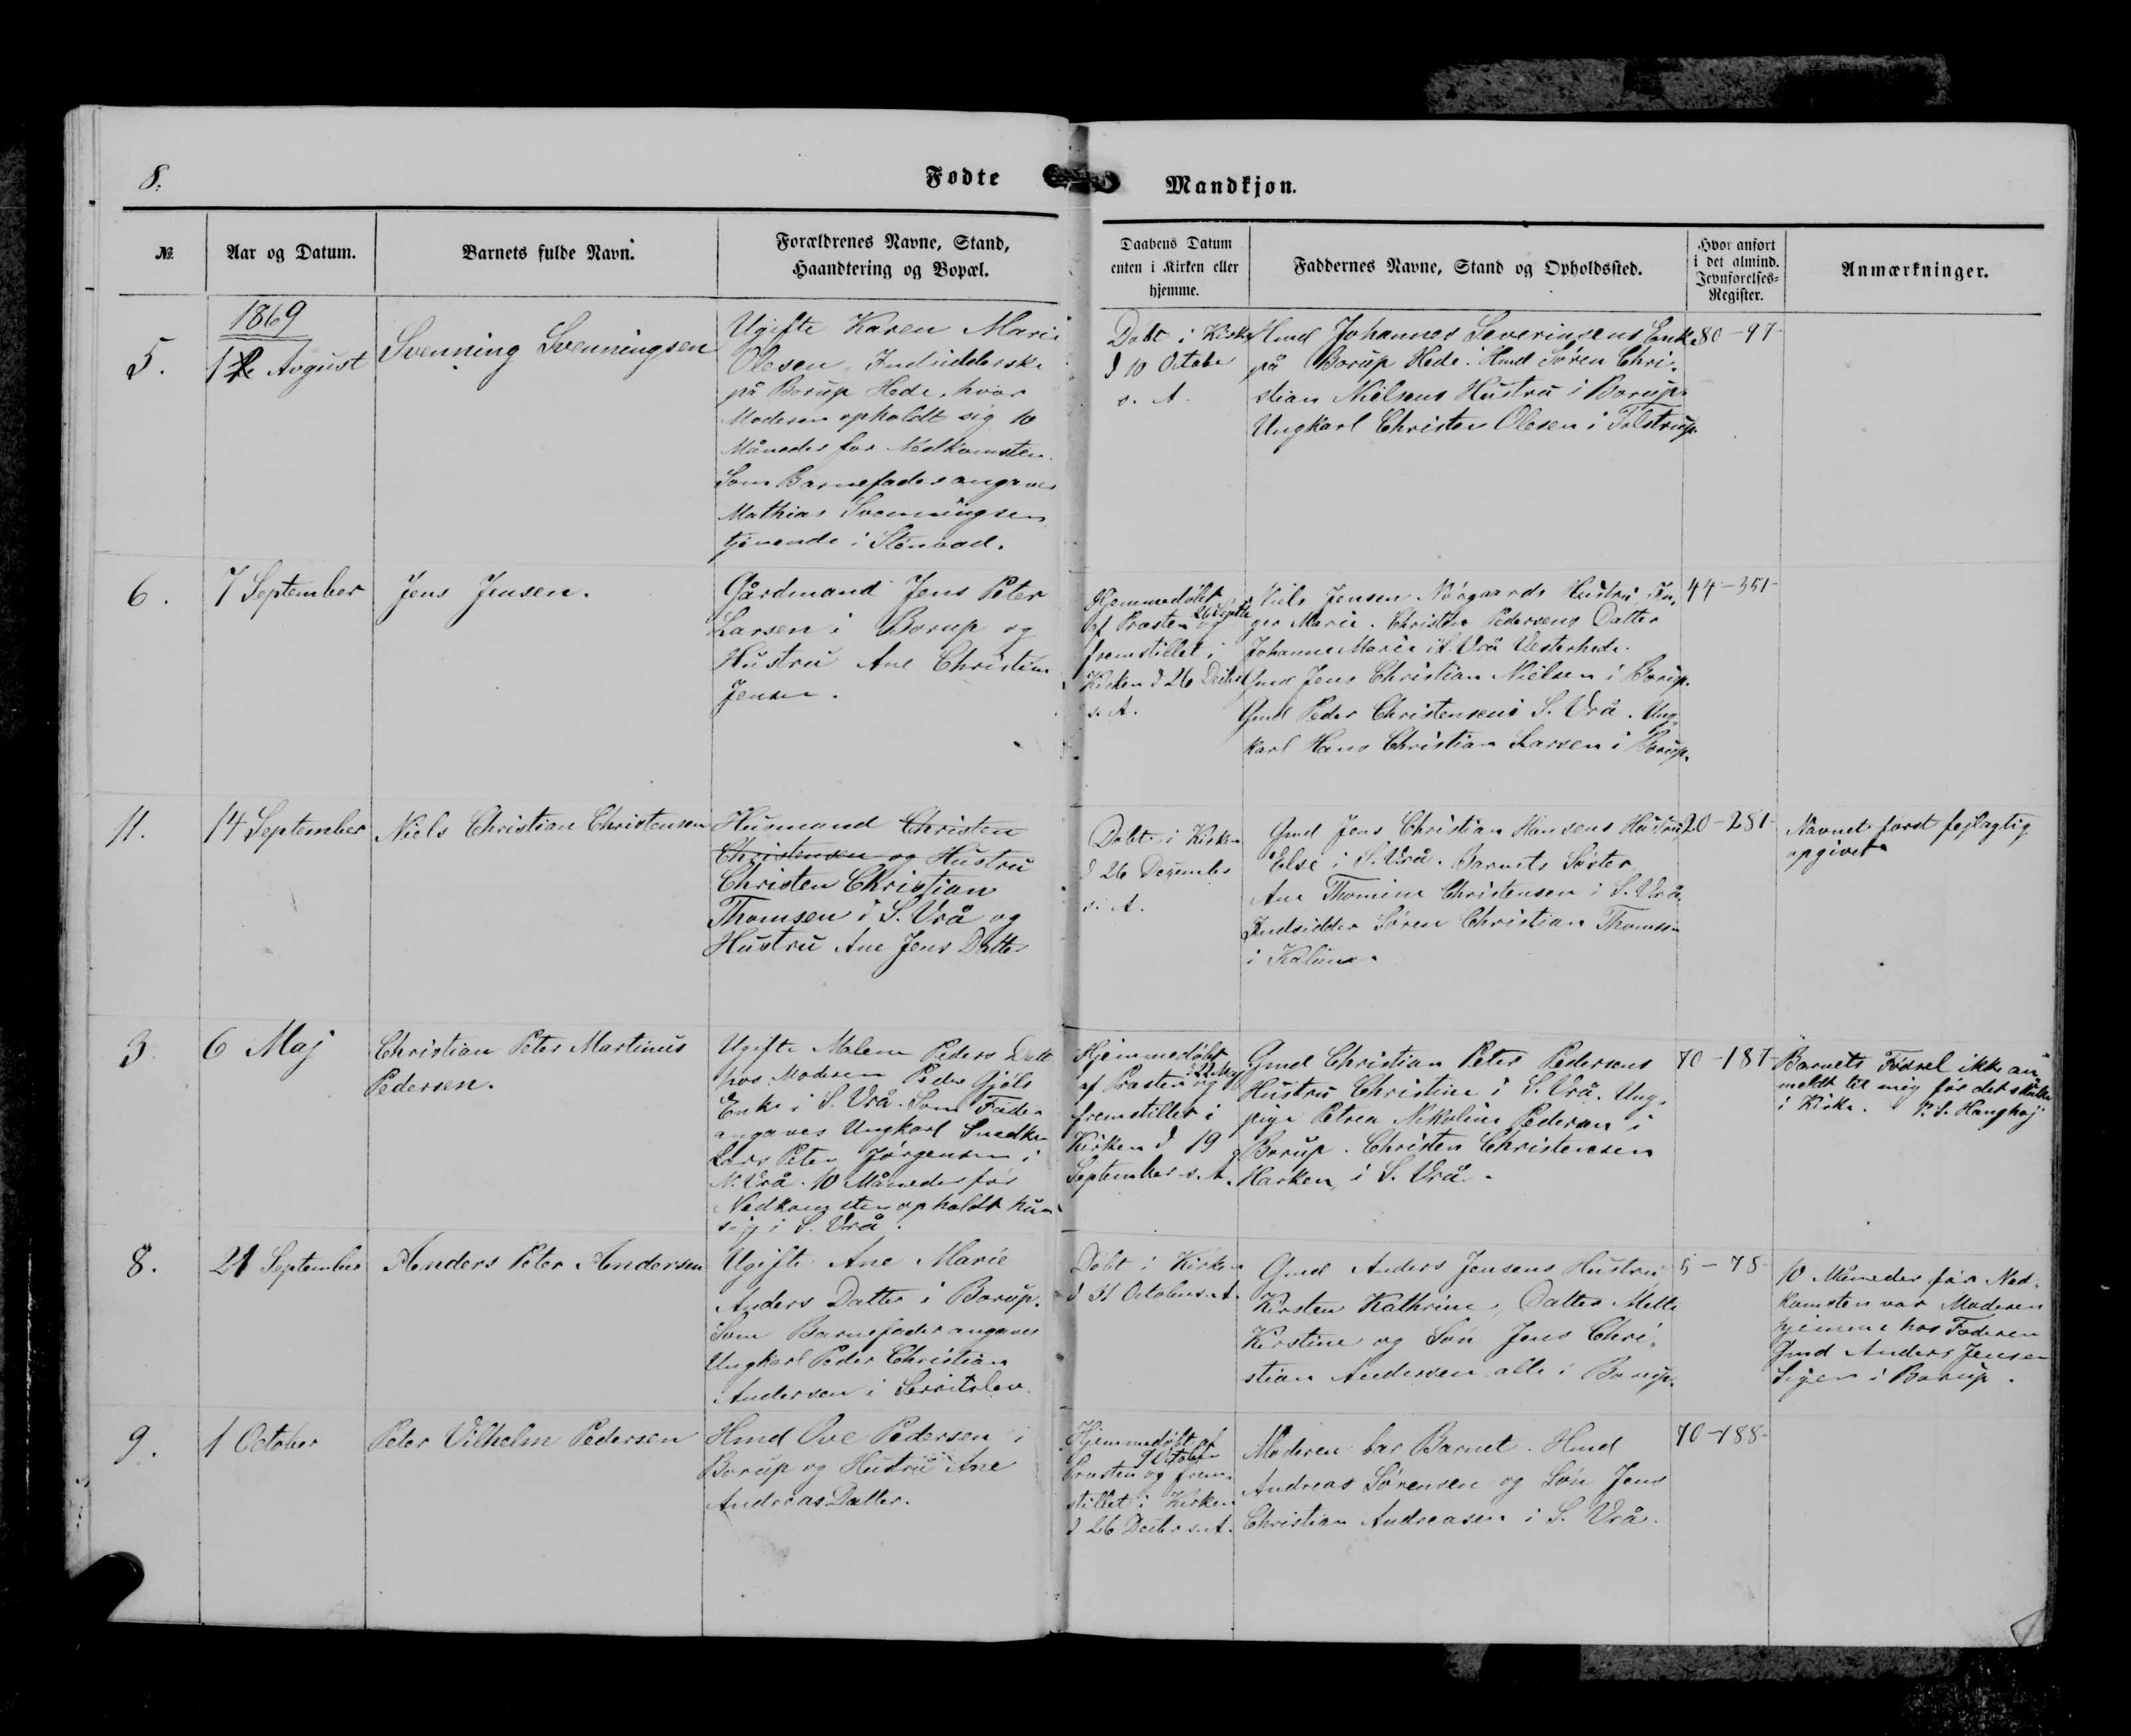 8.
Fødte
Mandkjøn.
№
Aar og Datum.
Barnets fulde Navn.
Forældrenes Navne, Stand,
Haandtering og Bopæl.
Daabens Datum
enten i Kirken eller
hjemme.
Faddernes Navne, Stand og Opholdssted.
Hvor anført
i det almind.
Jevnførelses-
Register.
Anmærkninger.
1869
5.
August
Svenning Svenningsen
Ugifte Karen Marie
Olesen, Indsidderske
på Borup Hede, hvor
Moderen opholdt sig 10
Måneder før Nedkomsten.
Som Barnefader angaves
Mathias Svenningsen
tjenende i Stenvad.
Døbt i Kirken
d 10 October
s. A.
Hmd Johannes Severinsens Enke
på Borup Hede. Hmd Søren Chri-
stian Nielsens Hustru i Borup.
Ungkarl Christen Olesen i Tolstrup.
80-97-
6.
7 September
Jens Jensen.
Gårdmand Jens Peter
Larsen i Borup og
Hustru Ane Christine
Jensen.
Hjemmedøbt
af Præsten 26 Septbr og
fremstillet i
Kirken d 26 Decbr
s. A.
Niels Jensen Nørgaards Hustru In-
ger Marie. Christen Pedersens Datter
Johanne Marie i S. Vrå Vesterhede.
Gmd Jens Christian Nielsen i Borup.
Gmd Peder Christensen i S. Vrå. Ung-
karl Hans Christian Larsen i Borup.
44-351-
11.
14 September
Niels Christian Christensen
Husmand Christen
Christensen og Hustru
Christen Christian
Thomsen i S. Vrå og
Hustru Ane Jens Datter
Døbt i Kirken
d 26 December
s. A.
Gmd Jens Christian Hansens Hustru
Else i S. Vrå. Barnets Søster
Ane Thomine Christensen i S. Vrå.
Indsidder Søren Christian Thomsen
i
20-281-
Navnet først fejlagtig
opgivet.
3.
6 Maj
Christian Peter Martinus
Pedersen.
Ugifte Malene Peders Datt
hos Moderen Peder Gjøls
Enke i S. Vrå. Som Fader
angaves Ungkarl Snedker
Lars Peter Jørgensen i
N. Vrå. 10 Måneder før
Nedkomsten opholdt hun
sig i S. Vrå.
Hjemmedøbt
af Præsten 22 Maj og
fremstillet i
Kirken d 19
September s. A.
Gmd Christian Peter Pedersens
Hustru Christine i S. Vrå. Ung-
pige Petrea Nikoline Pedersen i
Borup. Christen Christensen
Harken i S. Vrå.
70-187-
Barnets Fødsel ikke an-
meldt til mig før det skulde
i Kirke.
8.
21 September
Anders Peter Andersen
Ugifte Ane Marie
Anders Datter i Borup.
Som Barnefader angaves
Ungkarl Peder Christian
Andersen i Serritslev.
Døbt i Kirken
d 31 October s. A.
Gmd Anders Jensens Hustru
Kirsten Kathrine, Datter Mette
Kirstine og Søn Jens Chri-
stian Andersen alle i Borup.
5-78-
10 Måneder før Ned-
komsten var Moderen
hjemme hos Faderen
Gmd Anders Jensen
i Borup.
9.
1 October
Peter Vilhelm Pedersen
Hmd Ove Pedersen i
Borup og Hustru Ane
Andreas Datter.
Hjemmedøbt af
Præsten 9 October og frem-
stillet i Kirken
d 26 Decbr s. A.
Moderen bar Barnet. Hmd
Andreas Sørensen og Søn Jens
Christian Andreasen i S. Vrå.
70-188-